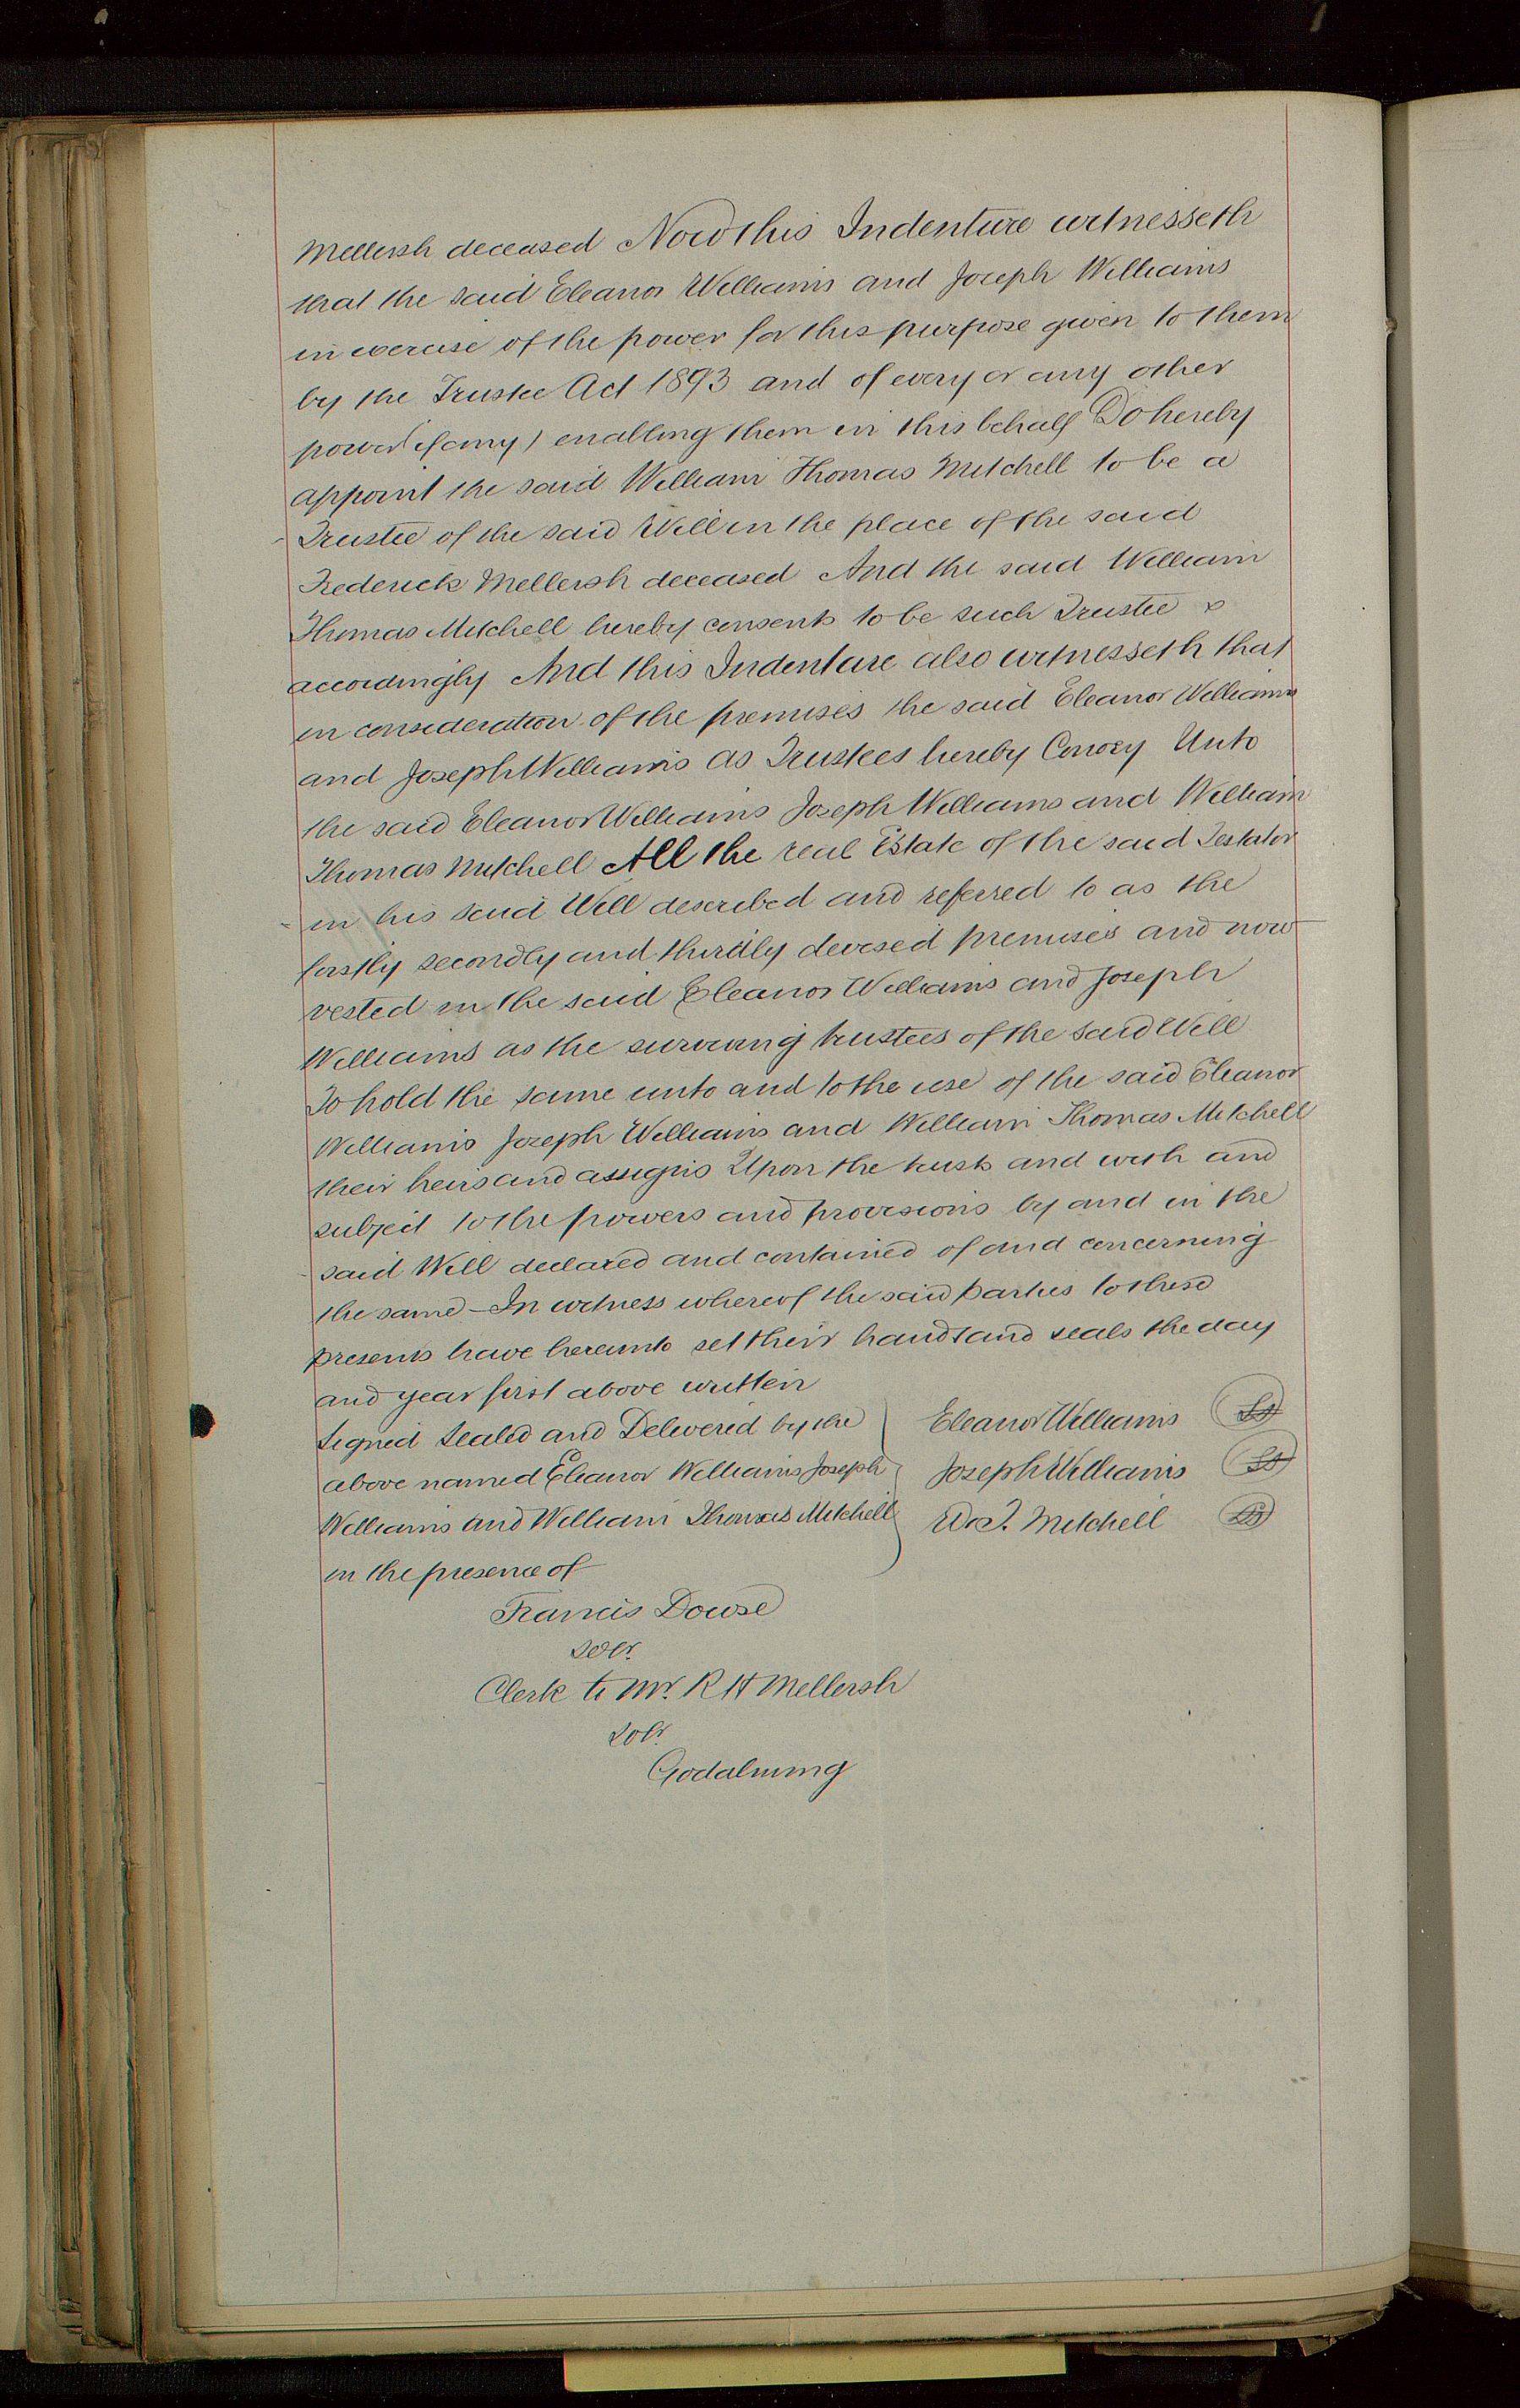 Mellersh deceased Now this Indenture witnesseth
that the said Eleanor Williams and Joseph Williams
in exercise of the power for this purpose given to them
by the Trustee Act 1893 and of every or any other
power (if any) enabling them in this behalf Do hereby
appoint the said William Thomas Mitchell to be a
Trustee of the said Will in the place of the said
Frederick Mellersh deceased And the said William
Thomas Mitchell hereby consents to be such Trustee
accordingly And this Indenture also witnesseth that
in consideration of the premises the said Eleanor Williams
and Joseph Williams as Trustees hereby Convey Unto
the said Eleanor Williams Joseph Williams and William
Thomas Mitchell All the real Estate of the said Testator
in his said Will described and referred to as the
firstly secondly and thirdly devised premises and now
vested in the said Eleanor Williams and Joseph
Williams as the surviving trustees of the said Will
To hold the same unto and to the use of the said Eleanor
Williams Joseph Williams and William Thomas Mitchell
their heirs and assigns Upon the trusts and with and
subject to the powers and provisions by and in the
said Will declared and contained of and concerning
the same – In witness whereof the said parties to these
presents have hereunto set their hands and seals the day
and year first above written
Signed Sealed and Delivered by the Eleanor Williams LS
above named Eleanor Williams Joseph Joseph Williams LS
Williams and William Thomas Mitchell W. T. Mitchell LS
in the presence of
Francis Dowse
Solr.
Clerk to Mr. R H Mellersh
Solr.
Godalming